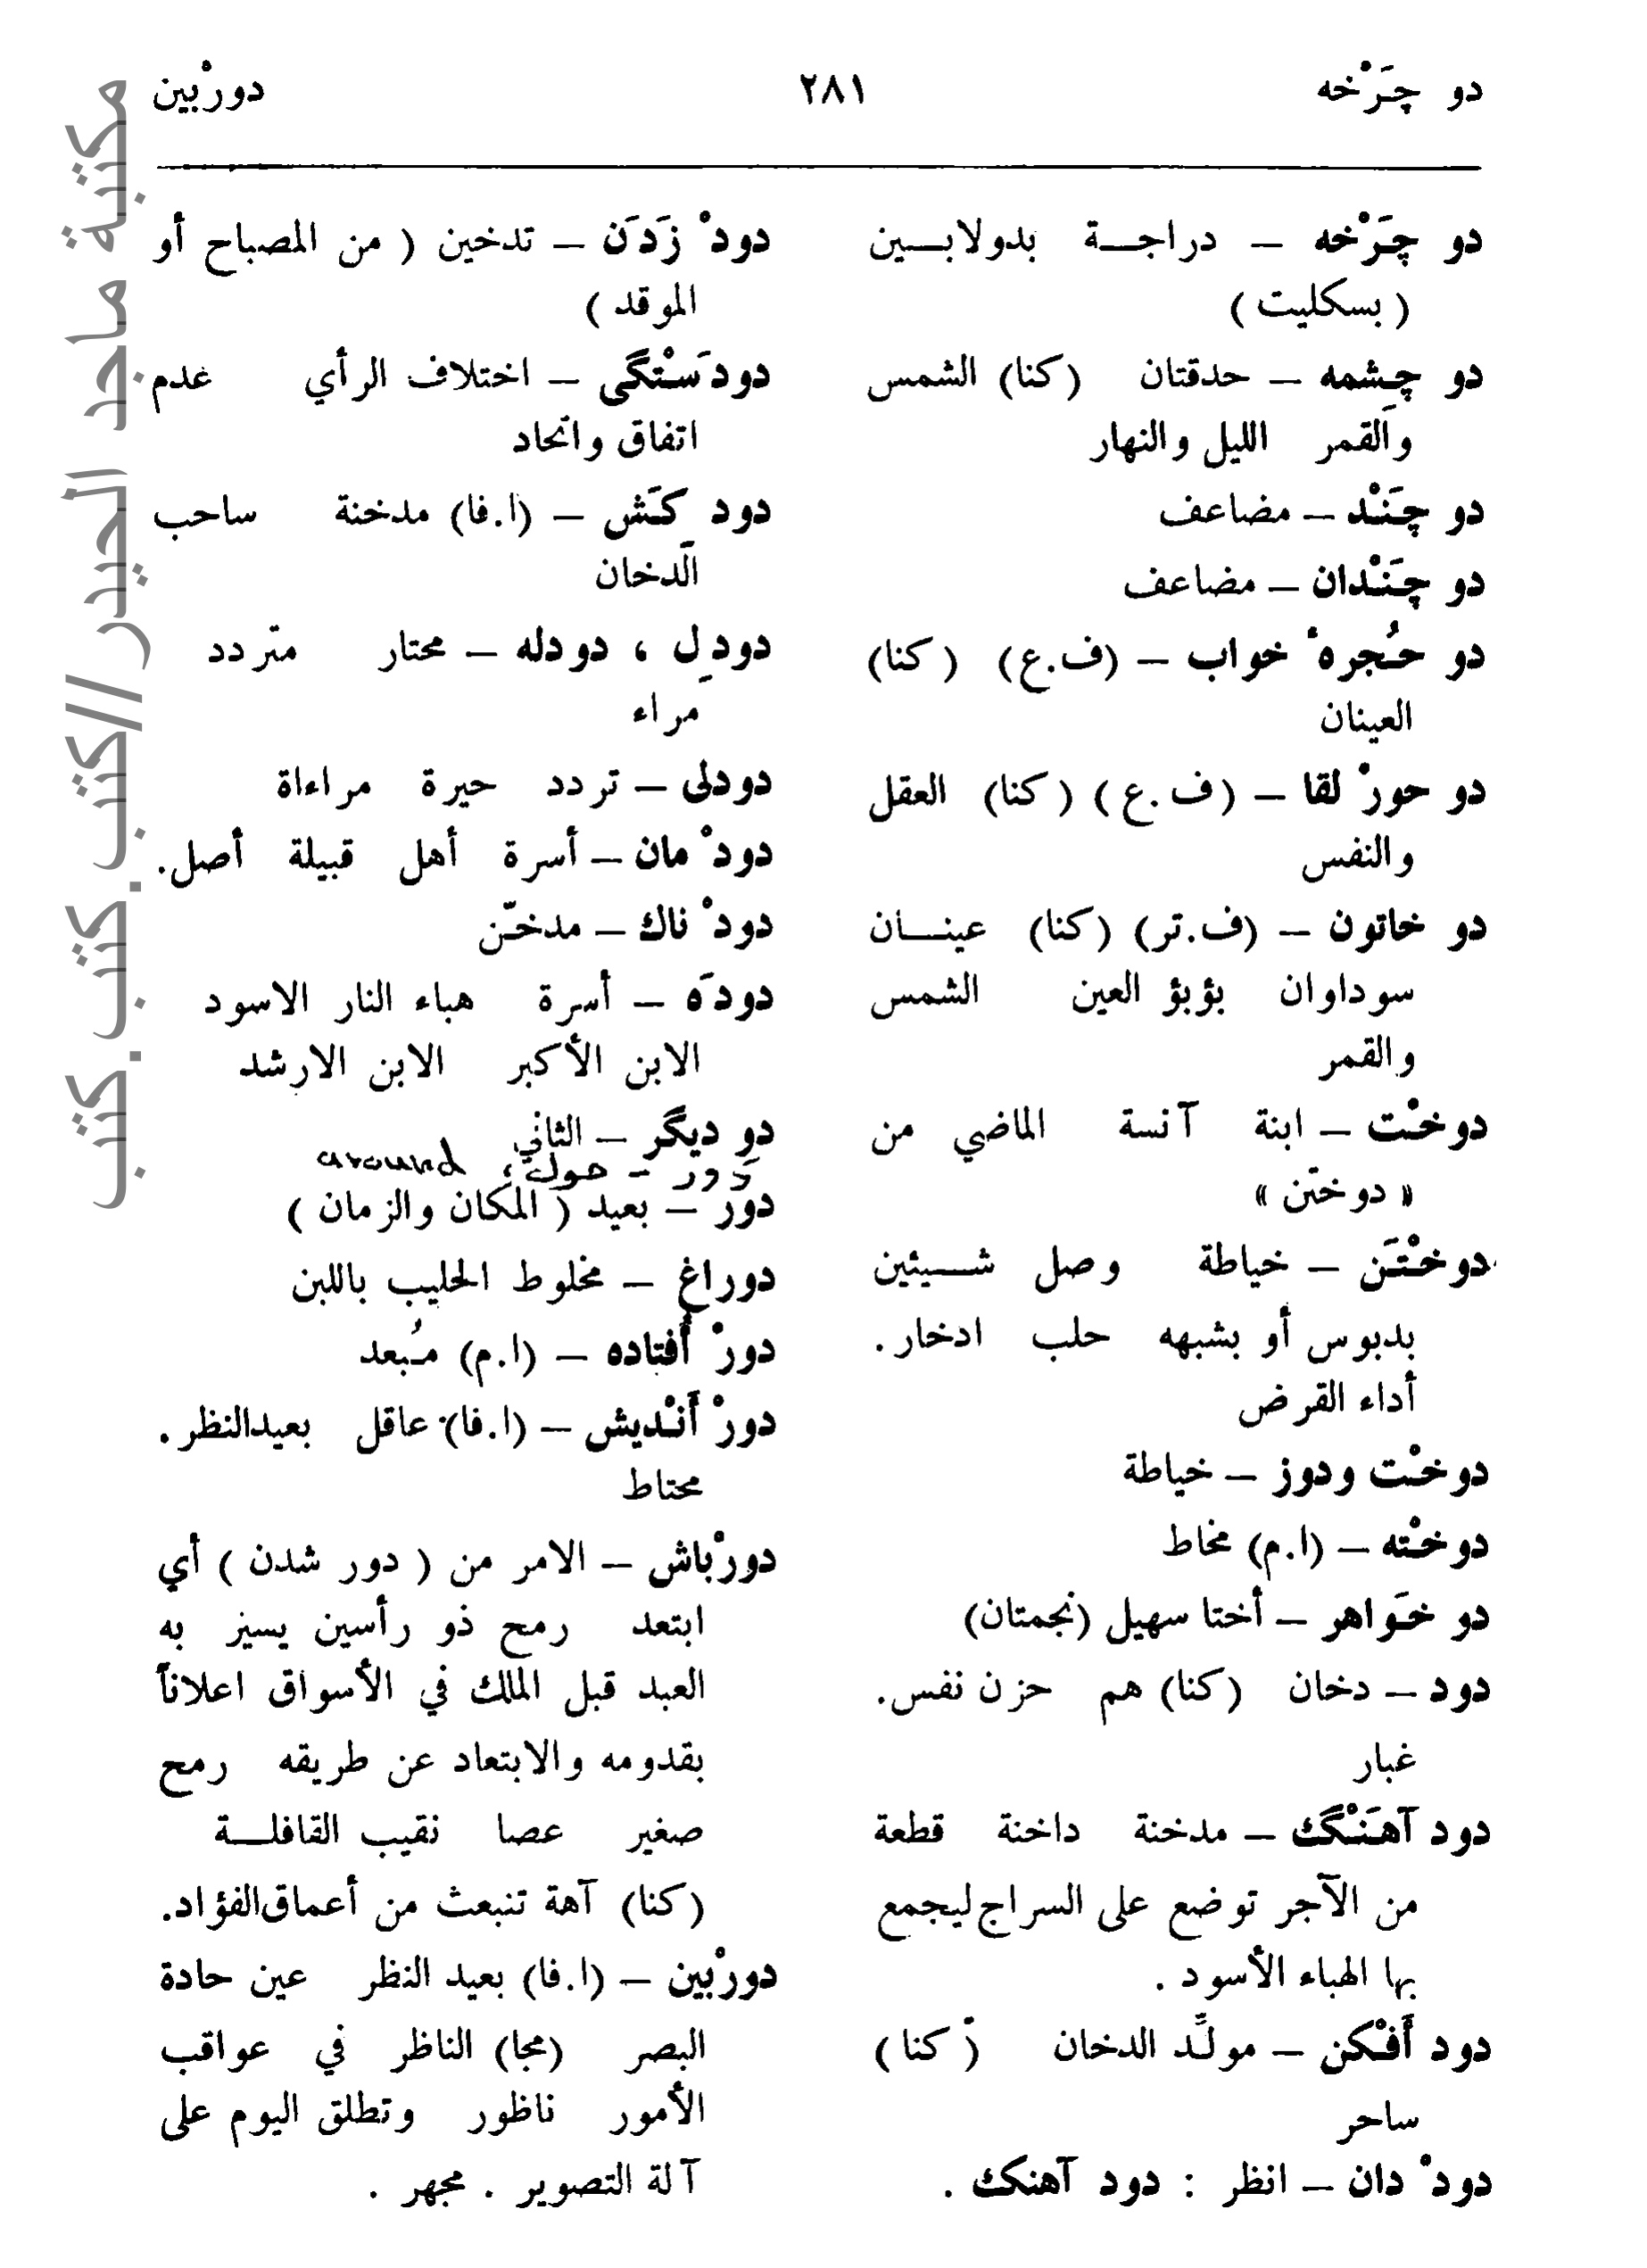 دو چَرْخه ٢٨١ دورْبين
دو چَرْخه – دراجـــة بدولابـــين
( بسكليت )
دو چشمه – حدقتان (كنا) الشمس
والقمر الليل والنهار
دو چَنْد – مضاعف
دو چَنْدان – مضاعف
دو حُجرهْ خواب – (ف.ع) (كنا)
العينان
دو حورْ لقا – (ف.ع) (كنا) العقل
والنفس
دو خاتون – (ف.تر) (كنا) عينـــان
سوداوان بؤبؤ العين الشمس
والقمر
دوخْت – ابنة آنسة الماضي من
« دوختن »
دوخْتَن – خياطة وصل شـــيئين
بدبوس أو بشبهه حلب ادخار .
أداء القرض
دوخْت ودوز – خياطة
دوخْته – (ا.م) مخاط
دو خَواهر – أختا سهيل (نجمتان)
دود – دخان (كنا) هم حزن نفس.
غبار
دود آهَنْگ – مدخنة داخنة قطعة
من الآجر توضع على السراج ليجمع
بها الهباء الأسود .
دود أَفْكن – مولِّد الدخان (كنا)
ساحر
دودْ دان – انظر : دود آهنك .
دودْ زَدَن – تدخين ( من المصباح أو
الموقد )
دودَسْتگى – اختلاف الرأي عدم
اتفاق واتحاد
دود كَش – (ا.فا) مدخنة ساحب
الدخان
دودِل ، دودله – محتار متردد
مراء
دودلى – تردد حيرة مراءاة
دودْمان – أسرة أهل قبيلة أصل.
دودْ ناك – مدخّن
دودَه – أسرة هباء النار الاسود
الابن الأكبر الابن الارشد
دو ديگر – الثاني
دَور - حول، around
دور – بعيد ( المكان والزمان )
دوراغ – مخلوط الحليب باللبن
دورْ أُفتاده – (ا.م) مُبعد
دورْ أَنْديش – (ا.فا) عاقل بعيدالنظر.
محتاط
دورْباش – الامر من ( دور شدن ) أي
ابتعد رمح ذو رأسين يسيز به
العبد قبل الملك في الأسواق اعلاناً
بقدومه والابتعاد عن طريقه رمح
صغير عصا نقيب القافلـــة
(كنا) آهة تنبعث من أعماق الفؤاد.
دورْبين – (ا.فا) بعيد النظر عين حادة
البصر (مجا) الناظر في عواقب
الأمور ناظور وتطلق اليوم على
آلة التصوير . مجهر .
مكتبة ماجد الحيدر//كتب.كتب.كتب